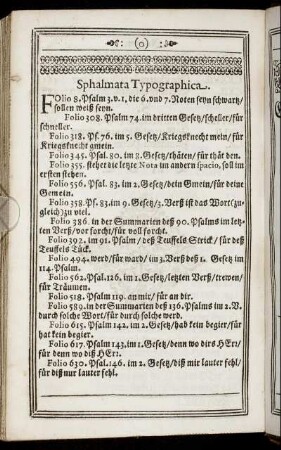 (o)
Sphalmata Typographica.
FOlio 8. Psalm 3. v. 1, die 6. vnd 7. Noten seyn schwartz/
sollen weiß seyn.
Folio 308. Psalm 74. im dritten Gesetz/scheller/für
schneller.
Folio 318. Ps. 76. im 5. Gesetz/Kriegsknecht mein/für
Kriegsknecht gmein.
Folio 345. Psal. 80. im 8. Gesetz/thäten/für thät den.
Folio 355. stehet die letzte Nota im andern spacio, soll im
ersten stehen.
Folio 556. Psal. 83. im 2. Gesetz/dein Gmein/für deine
Gemein.
Folio 358. Ps. 83. im 9. Gesetz/3. Verß ist das Wort (zu-
gleich) zu viel.
Folio 386. in der Summarien deß 90. Psalms im letz-
ten Verß/vor forcht/für voll forcht.
Folio 392. im 91. Psalm/deß Teuffels Strick/für deß
Teuffels Tück.
Folio 494. werd/für ward/im 3. Verß deß 1. Gesetz im
114. Psalm.
Folio 562. Psal. 126. im 1. Gesetz/letzten Verß/trewen/
für Träumen.
Folio 518. Psalm 119. an mir/für an dir.
Folio 589. in der Summarien deß 136. Psalms im 2. V.
durch solche Wort/für durch solche werd.
Folio 615. Psalm 142. im 2. Gesetz/hab kein begier/für
hat kein begier.
Folio 617. Psalm 143. im 1. Gesetz/denn wo dirs HErr/
für denn wo diß HErr.
Folio 630. Psal. 146. im 2. Gesetz/diß mir lauter fehl/
für diß nur lauter fehl.